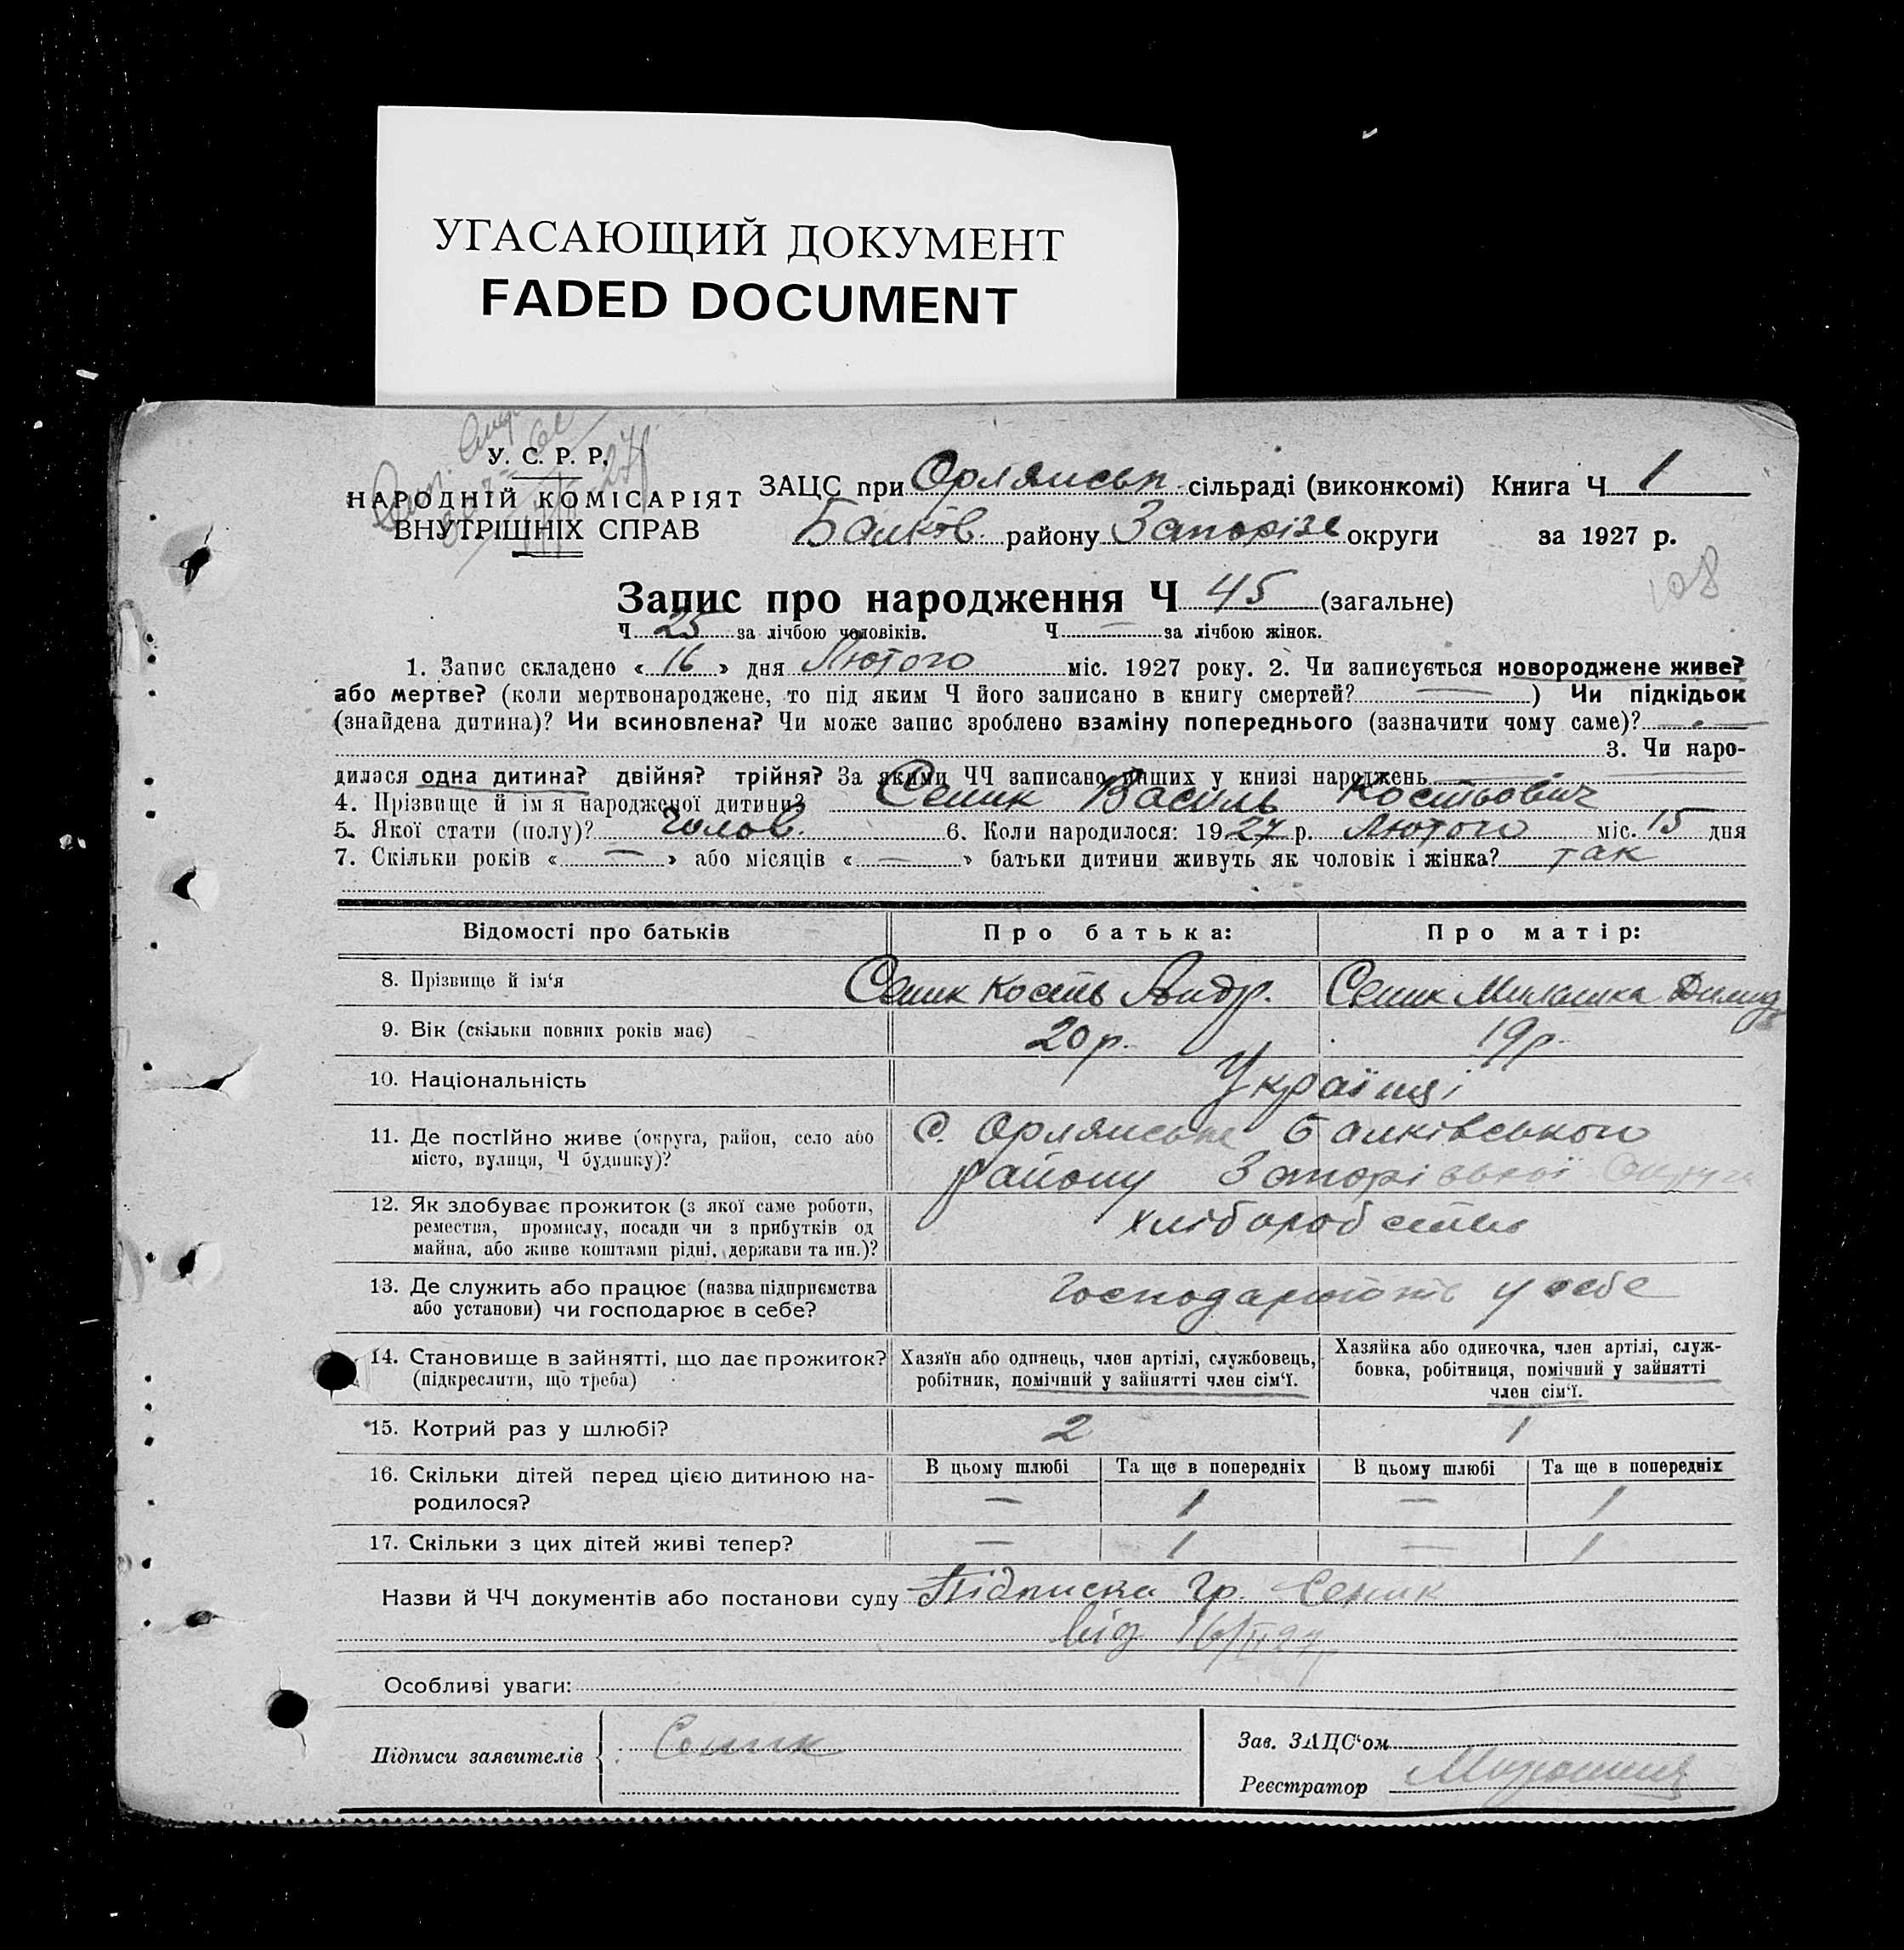 УГАСАЮЩИЙ ДОКУМЕНТ
FADED DOCUMENT
У. С. Р. Р.
НАРОДНІЙ КОМІСАРІЯТ
ВНУТРІШНІХ СПРАВ
ЗАЦС при Орлянськ. сільраді (виконкомі) Книга Ч 1
Балків. району Запорізь округи за 1927 р.
108
Запис про народження Ч 45 (загальне)
Ч 25 за лічбою чоловіків. Ч — за лічбою жінок.
1. Запис складено « 16 » дня Лютого міс. 1927 року. 2. Чи записується новороджене живе?
або мертве? (коли мертвонароджене, то під яким Ч його записано в книгу смертей? — ) Чи підкідьок
(знайдена дитина)? Чи всиновлена? Чи може запис зроблено взаміну попереднього (зазначити чому саме)? —
3. Чи наро-
дилася одна дитина? двійня? трійня? За якими ЧЧ записано инших у книзі народжень —
4. Прізвище й ім'я народженої дитини? Сеник Василь Костьович
5. Якої стати (полу)? чолов. 6. Коли народилося: 1927 р. Лютого міс. 15 дня
7. Скільки років « — » або місяців « — » батьки дитини живуть як чоловік і жінка? так
Відомості про батьків Про батька: Про матір:
8. Прізвище й ім'я Сеник Кость Андр. Сеник Милашка
9. Вік (скільки повних років має) 20 р. 19 р.
10. Національність Українці
11. Де постійно живе (округа, район, село або С. Орлянське Балківського
місто, вулиця, Ч будинку)? району Запорізької Округи
12. Як здобуває прожиток (з якої саме роботи, хліборобство
ремества, промислу, посади чи з прибутків од
майна, або живе коштами рідні, держави та ин.)?
13. Де служить або працює (назва підприємства Господарюють у себе
або установи) чи господарює в себе?
14. Становище в зайнятті, що дає прожиток? Хазяїн або одинець, член артілі, службовець, Хазяйка або одиночка, член артілі, служ-
(підкреслити, що треба) робітник, помічний у зайнятті член сім'ї. бовка, робітниця, помічний у зайнятті
член сім'ї.
15. Котрий раз у шлюбі? 2 1
16. Скільки дітей перед цією дитиною на- В цьому шлюбі Та ще в попередніх В цьому шлюбі Та ще в попередніх
родилося? — 1 — 1
17. Скільки з цих дітей живі тепер? — 1 — 1
Назви й ЧЧ документів або постанови суду Підписка гр. Сеник
від 16/II 27 р
Особливі уваги:
Підписи заявителів Сеник
Зав. ЗАЦС'ом
Реєстратор